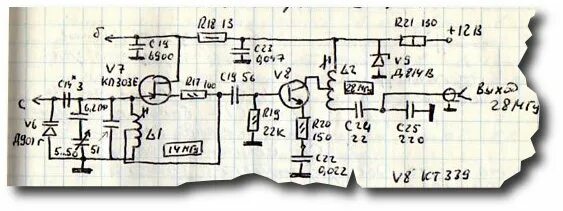 б
R18 13
R21 150
+12В
C18 6800
C23 0,047
V9 Д814В
V7 КП303Е
R17 100
C19 56
V8
L2
28МГц
Выход 28МГц
C14* 3
С
6,2
V6 Д901г
5-50
51
L1
14МГц
R19 22К
R20 150
C24 22
C25 220
C22 0,022
V8 КТ339